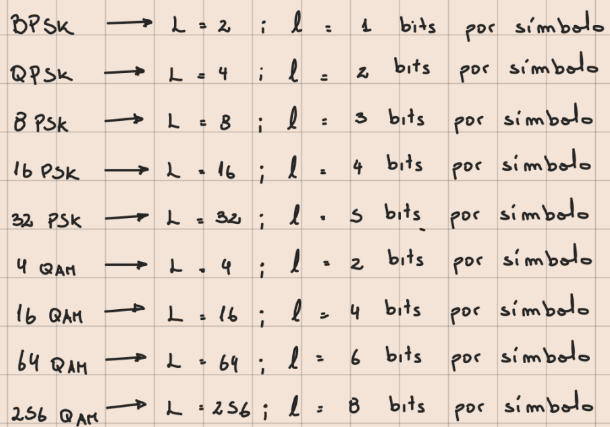 BPSK → L = 2 ; l = 1 bits por símbolo
QPSK → L = 4 ; l = 2 bits por símbolo
8 PSK → L = 8 ; l = 3 bits por símbolo
16 PSK → L = 16 ; l = 4 bits por símbolo
32 PSK → L = 32 ; l = 5 bits por símbolo
4 QAM → L = 4 ; l = 2 bits por símbolo
16 QAM → L = 16 ; l = 4 bits por símbolo
64 QAM → L = 64 ; l = 6 bits por símbolo
256 QAM → L = 256 ; l = 8 bits por símbolo